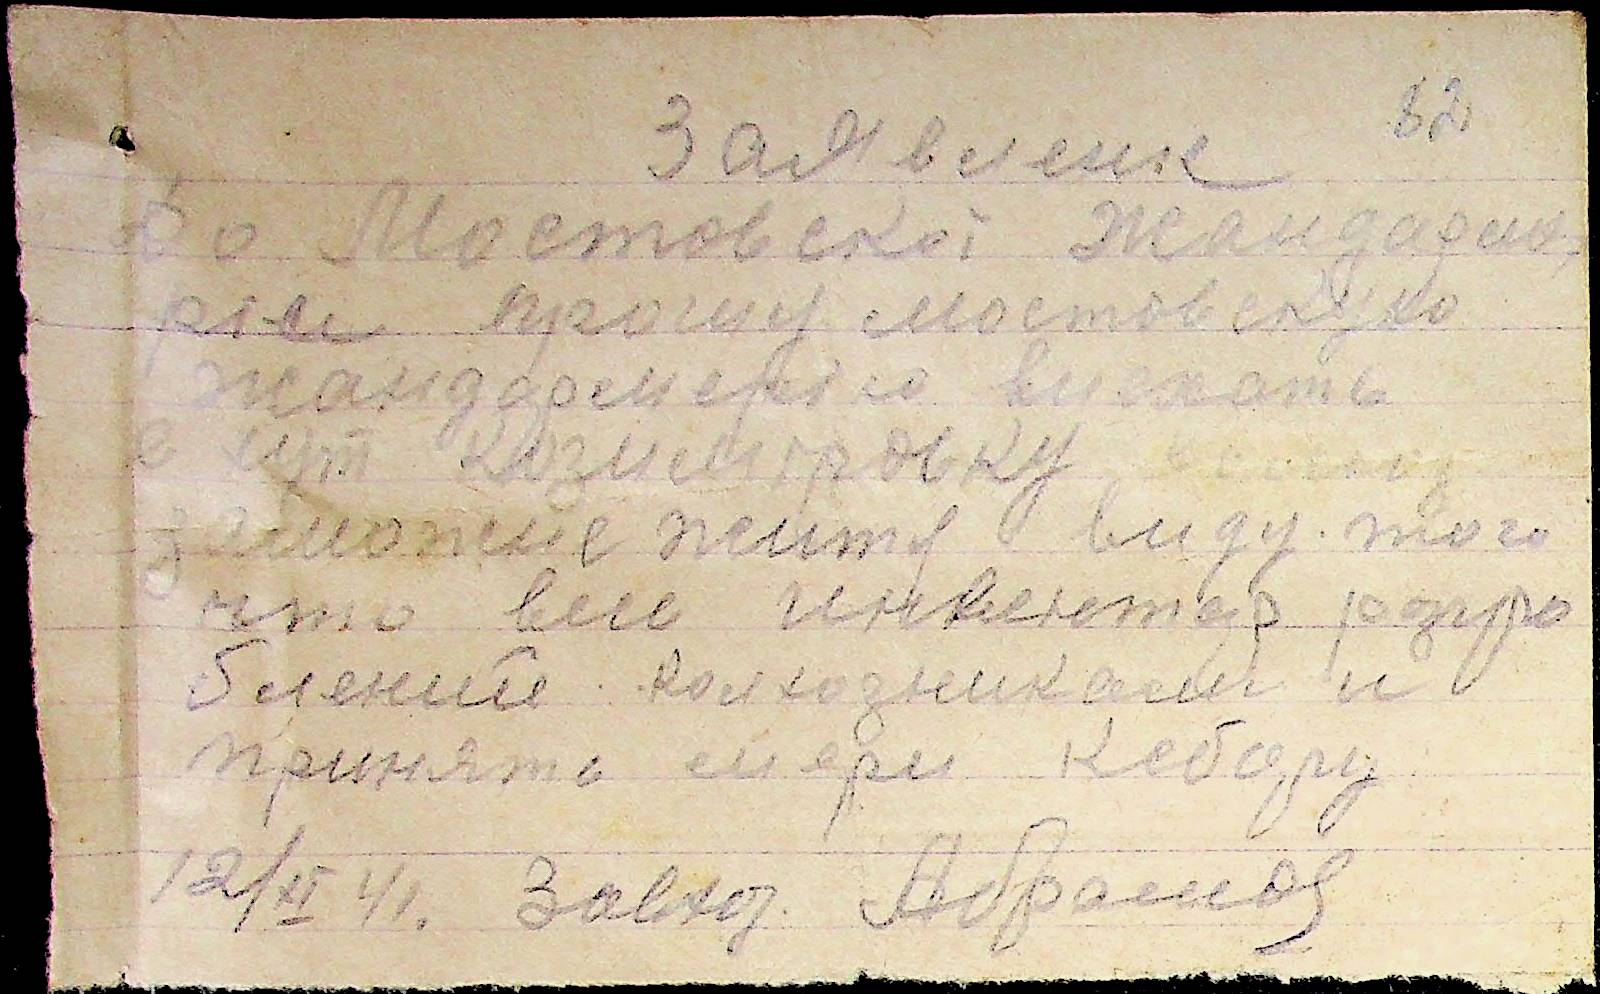 82
Заявление
До Мостовскоі Жандарме
ріи прошу мостовскую
жандармерію виехать
в хут Козиміровку
заможне житя ввиду того
что вне имеютер разгро
бление колхозниками и
принять мери
12/XI 41. Завхоз. Абрамов